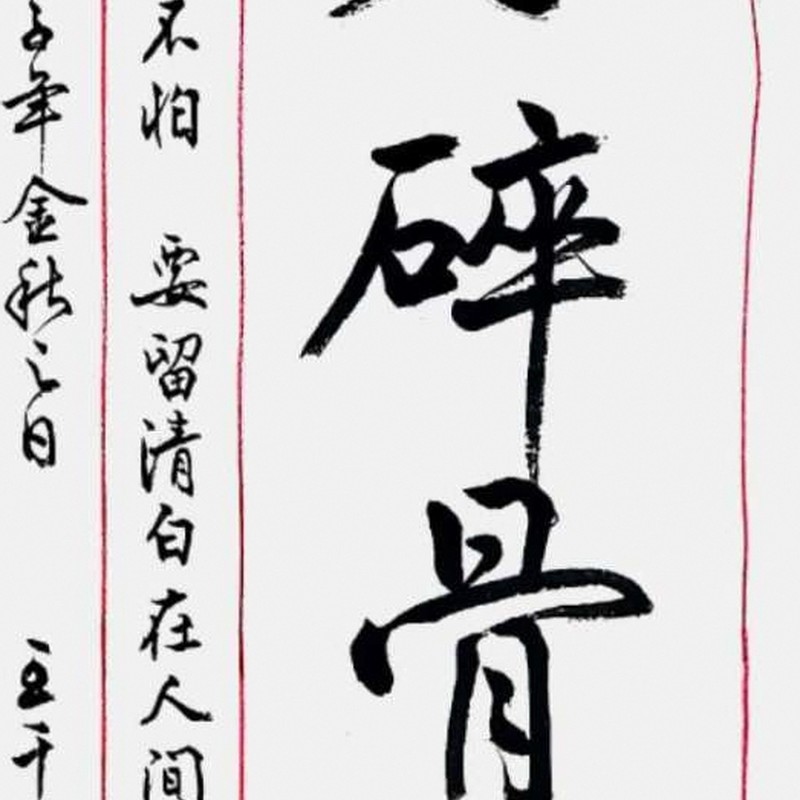 碎骨
不怕 要留清白在人间
子年金秋之日 千